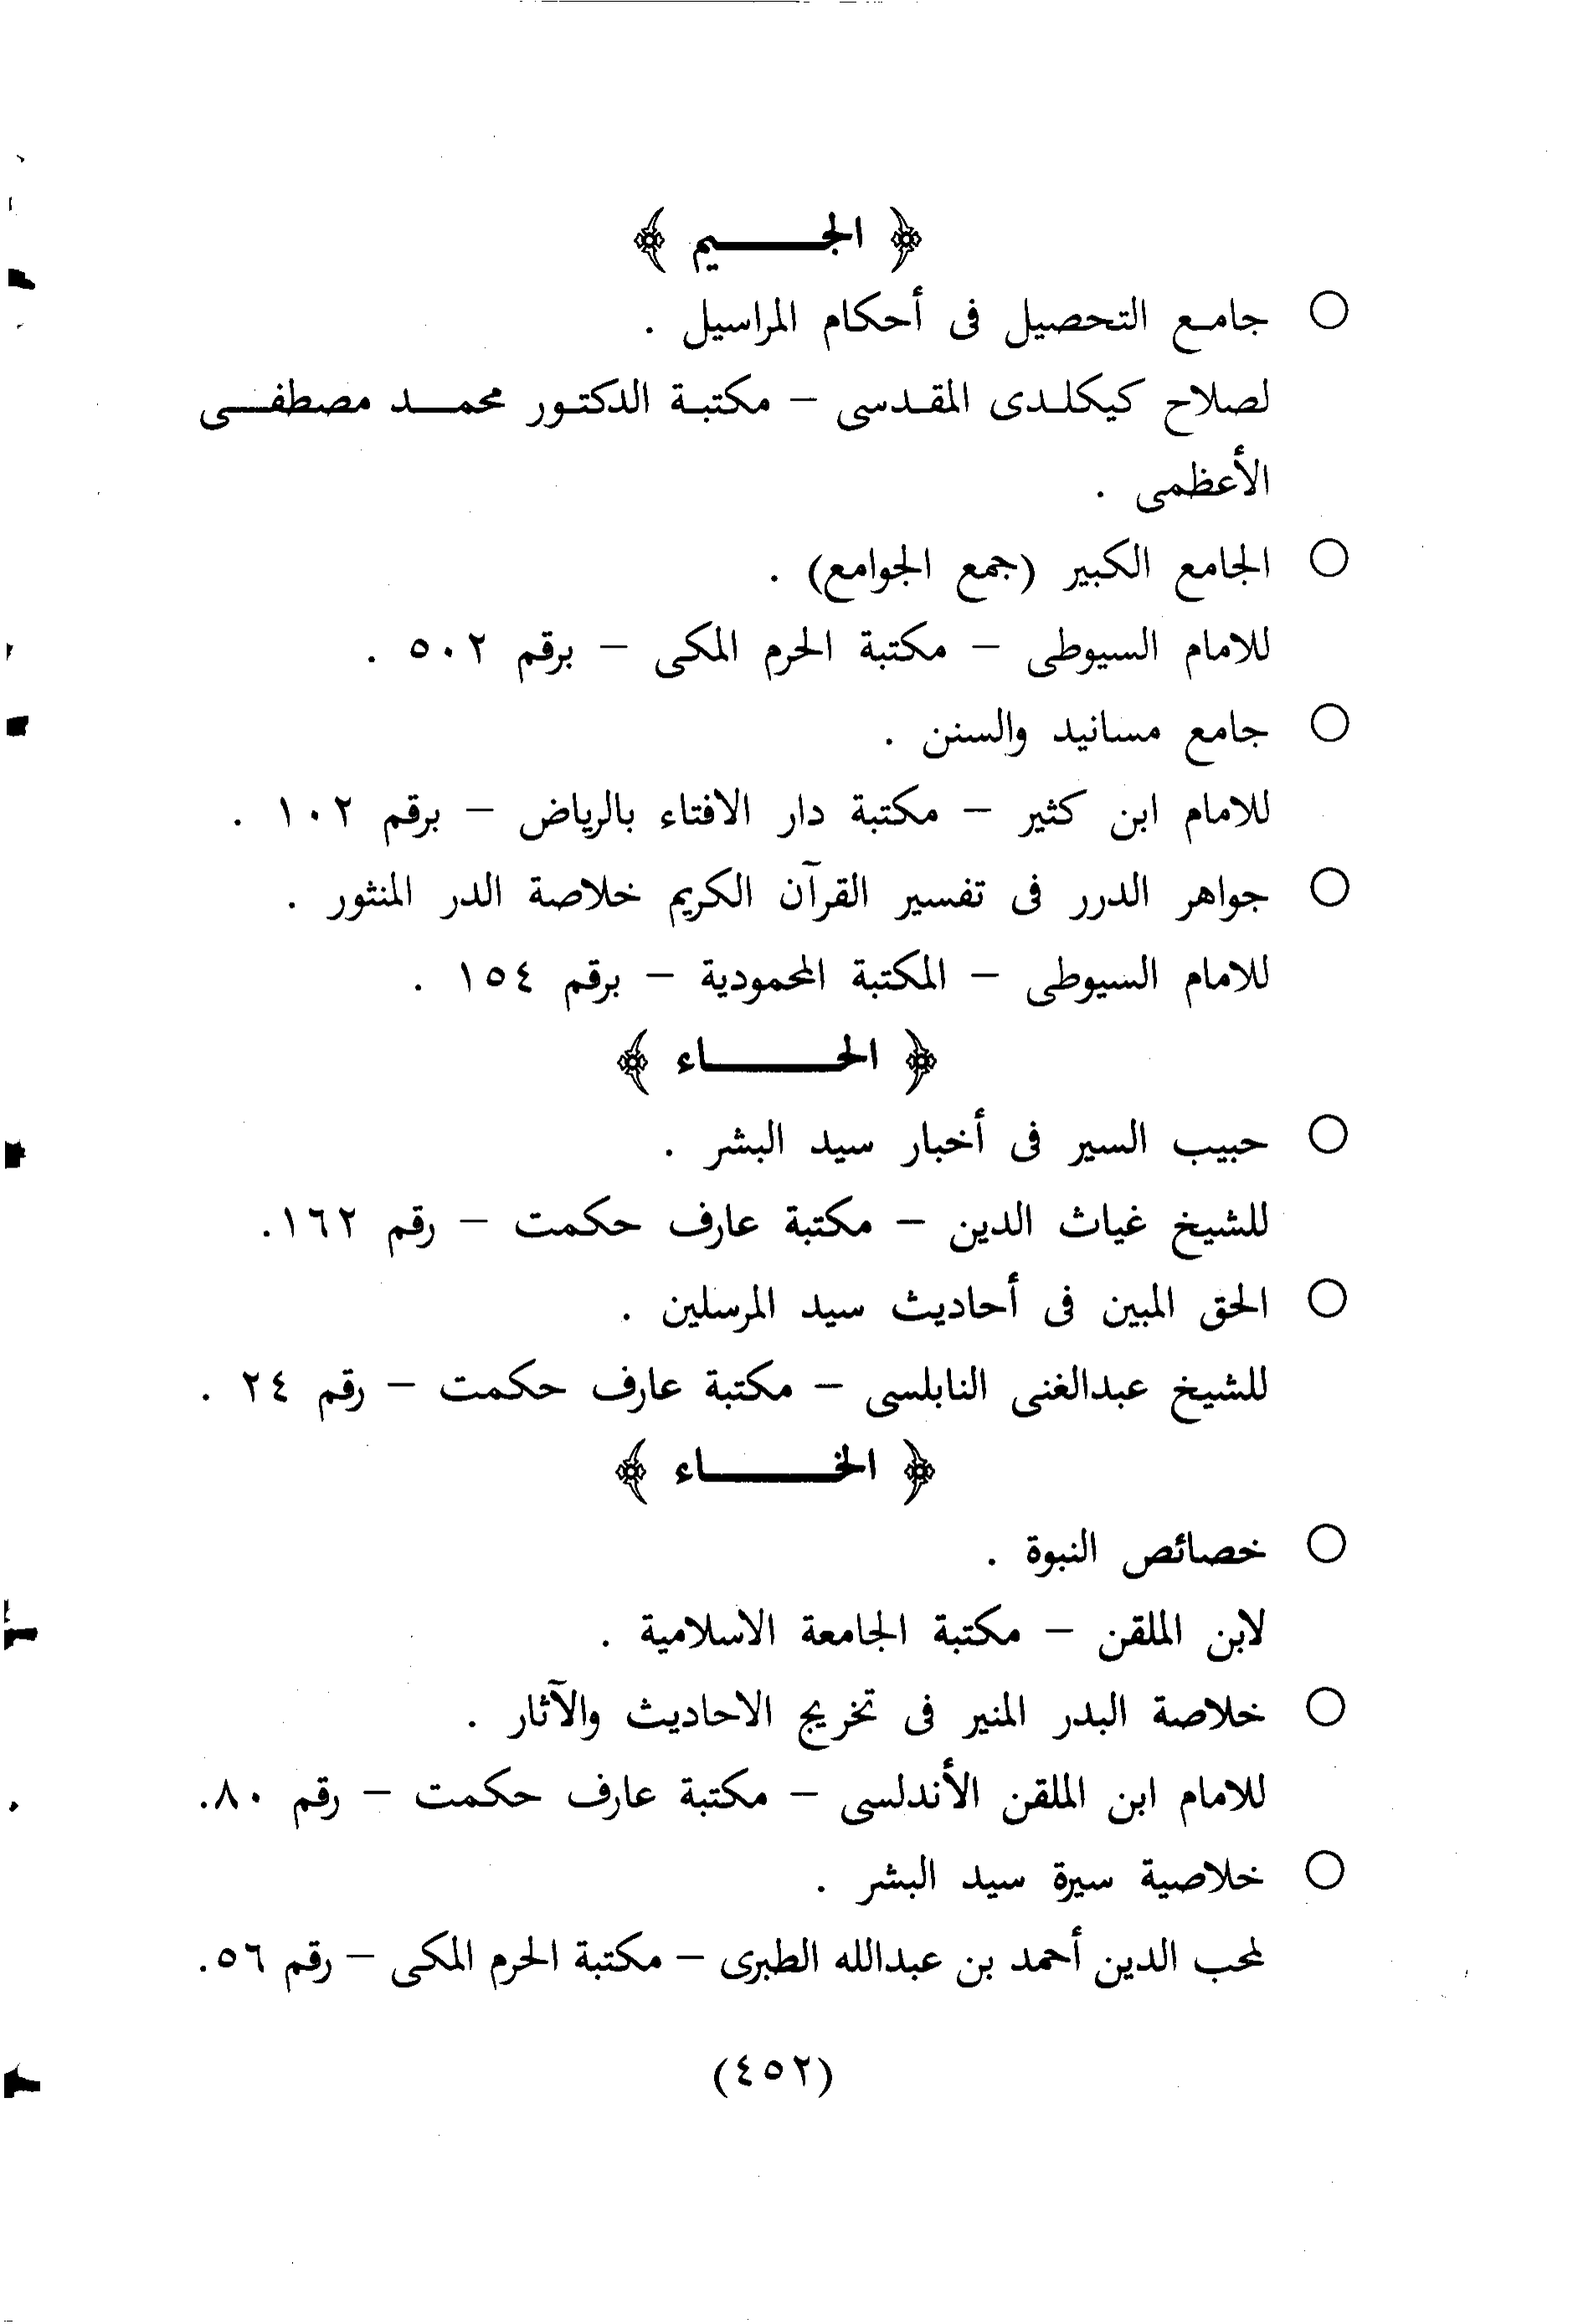 ﴿ الجيم ﴾
○ جامع التحصيل فى أحكام المراسيل .
لصلاح كيكلدى المقدسى – مكتبة الدكتور محمد مصطفى
الأعظمى .
○ الجامع الكبير (جمع الجوامع) .
للامام السيوطى – مكتبة الحرم المكى – برقم ٥٠٢ .
○ جامع مسانيد والسنن .
للامام ابن كثير – مكتبة دار الافتاء بالرياض – برقم ١٠٢ .
○ جواهر الدرر فى تفسير القرآن الكريم خلاصة الدر المنثور .
للامام السيوطى – المكتبة المحمودية – برقم ١٥٤ .
﴿ الحاء ﴾
○ حبيب السير فى أخبار سيد البشر .
للشيخ غياث الدين – مكتبة عارف حكمت – رقم ١٦٢.
○ الحق المبين فى أحاديث سيد المرسلين .
للشيخ عبدالغنى النابلسى – مكتبة عارف حكمت – رقم ٢٤ .
﴿ الخاء ﴾
○ خصائص النبوة .
لابن الملقن – مكتبة الجامعة الاسلامية .
○ خلاصة البدر المنير فى تخريج الاحاديث والآثار .
للامام ابن الملقن الأندلسى – مكتبة عارف حكمت – رقم ٨٠.
○ خلاصية سيرة سيد البشر .
لمحب الدين أحمد بن عبدالله الطبرى – مكتبة الحرم المكى – رقم ٥٦.
(٤٥٢)